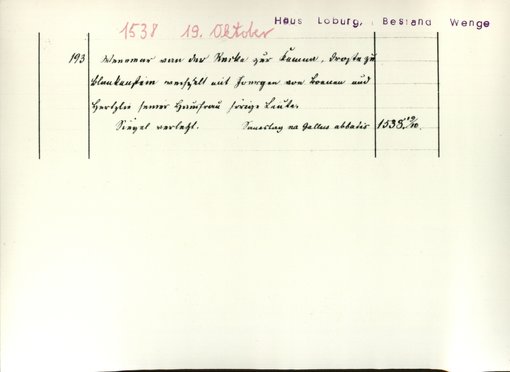 1538 19. Oktober
Haus Loburg, Bestand Wenge
193 Wennemar van der Recke zur Kemna, Droste zu
Blankenstein wechselt mit Juergen von Boenen und
Hertzlie seiner Hausfrau hörige Leute.
Siegel verletzt. Sauestag na Gallus abbatis 1538 19/10.